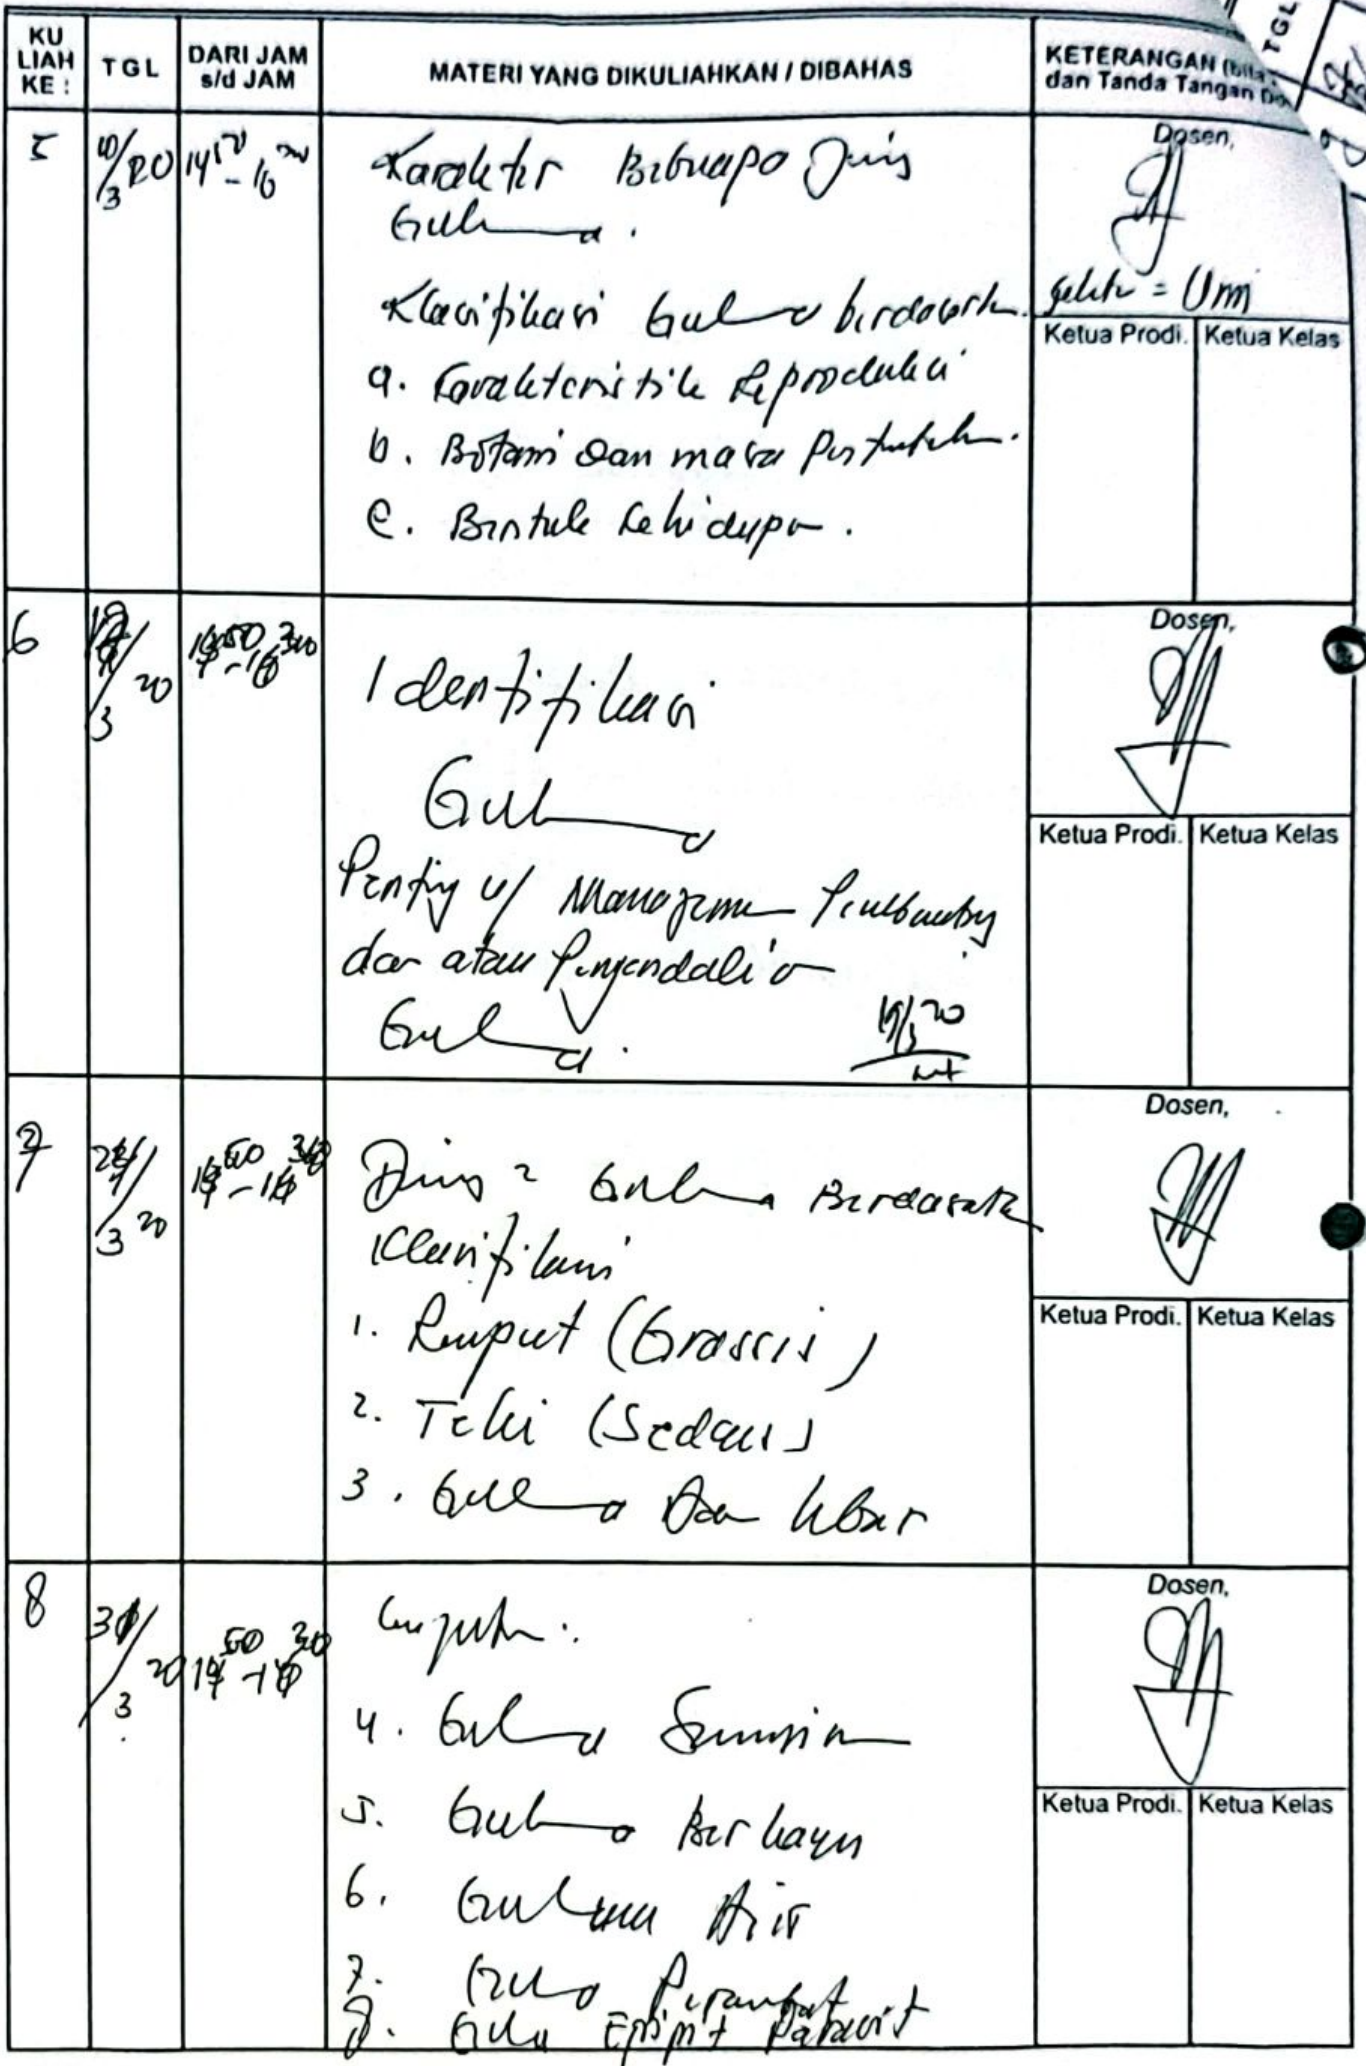 KU LIAH KE :
TGL
DARI JAM s/d JAM
MATERI YANG DIKULIAHKAN / DIBAHAS
KETERANGAN (bila
dan Tanda Tangan Do
TGL
5
10/3 20
14 50 - 16
Karakter Beberapa Jenis
Gulma.
Klasifikasi Gulma berdasarkan
a. Karakteristik Reproduksi
b. Botani dan masa
c. Bentuk Kehidupan.
Dosen,
= Umi
Ketua Prodi. Ketua Kelas
6
/3 20
50 - 16 30
Identifikasi
Gulma
Penting u/ Manajemen
dan atau Pengendalian
Gulma.
/3 20
Dosen,
Ketua Prodi. Ketua Kelas
7
24/3 20
14 50 - 16 30
Jenis 2 Gulma Berdasarkan
Klasifikasi
1. Rumput (Grasses)
2. Teki (Sedges)
3. Gulma Daun lebar
Dosen,
Ketua Prodi. Ketua Kelas
8
31/3 20
14 50 - 16 30
4. Gulma
5. Gulma Berkayu
6. Gulma Air
7. Gulma Perambat
8. Gulma Epipit Parasit
Dosen,
Ketua Prodi. Ketua Kelas